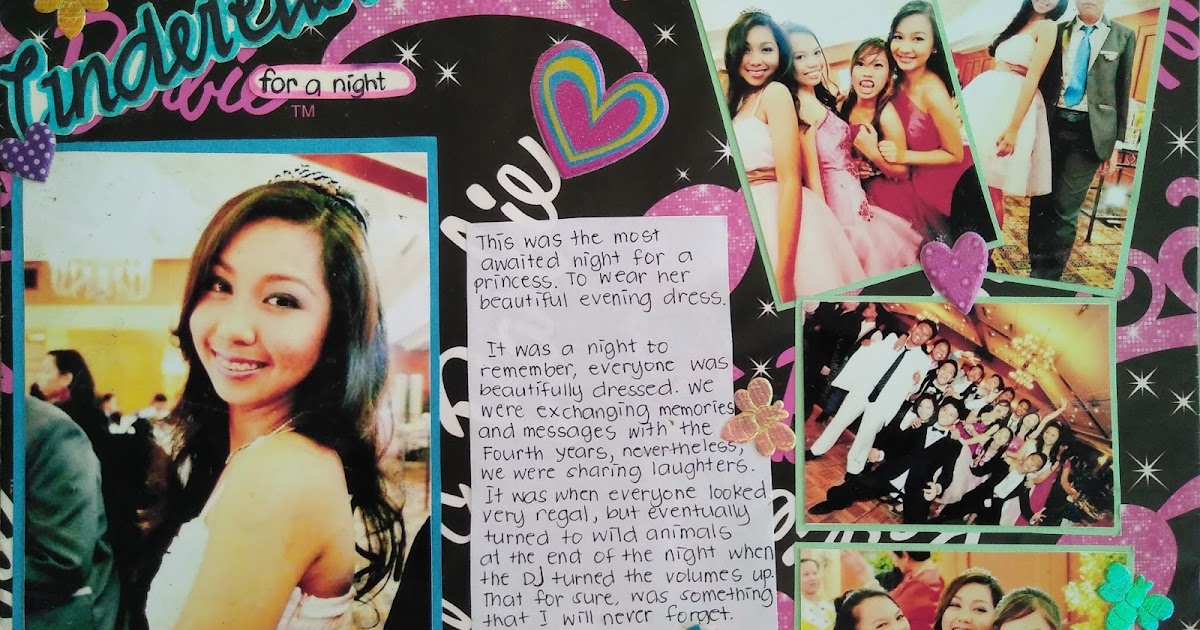 Cinderella
for a night
TM
This was the most
awaited night for a
princess. To wear her
beautiful evening dress.
It was a night to
remember, everyone was
beautifully dressed. We
were exchanging memories
and messages with the
Fourth years, nevertheless,
we were sharing laughters.
It was when everyone looked
very regal, but eventually
turned to wild animals
at the end of the night when
the DJ turned the volumes up.
That for sure, was something
that I will never forget.